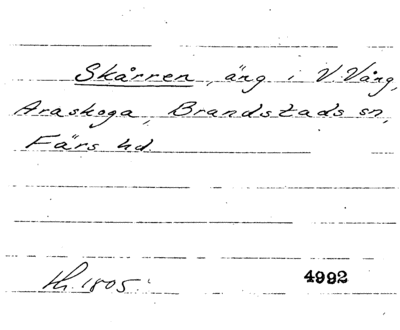 Skårren, äng i V. Vång,
Araskoga, Brandstads sn,
Färs hd
lh. 1805.
4992